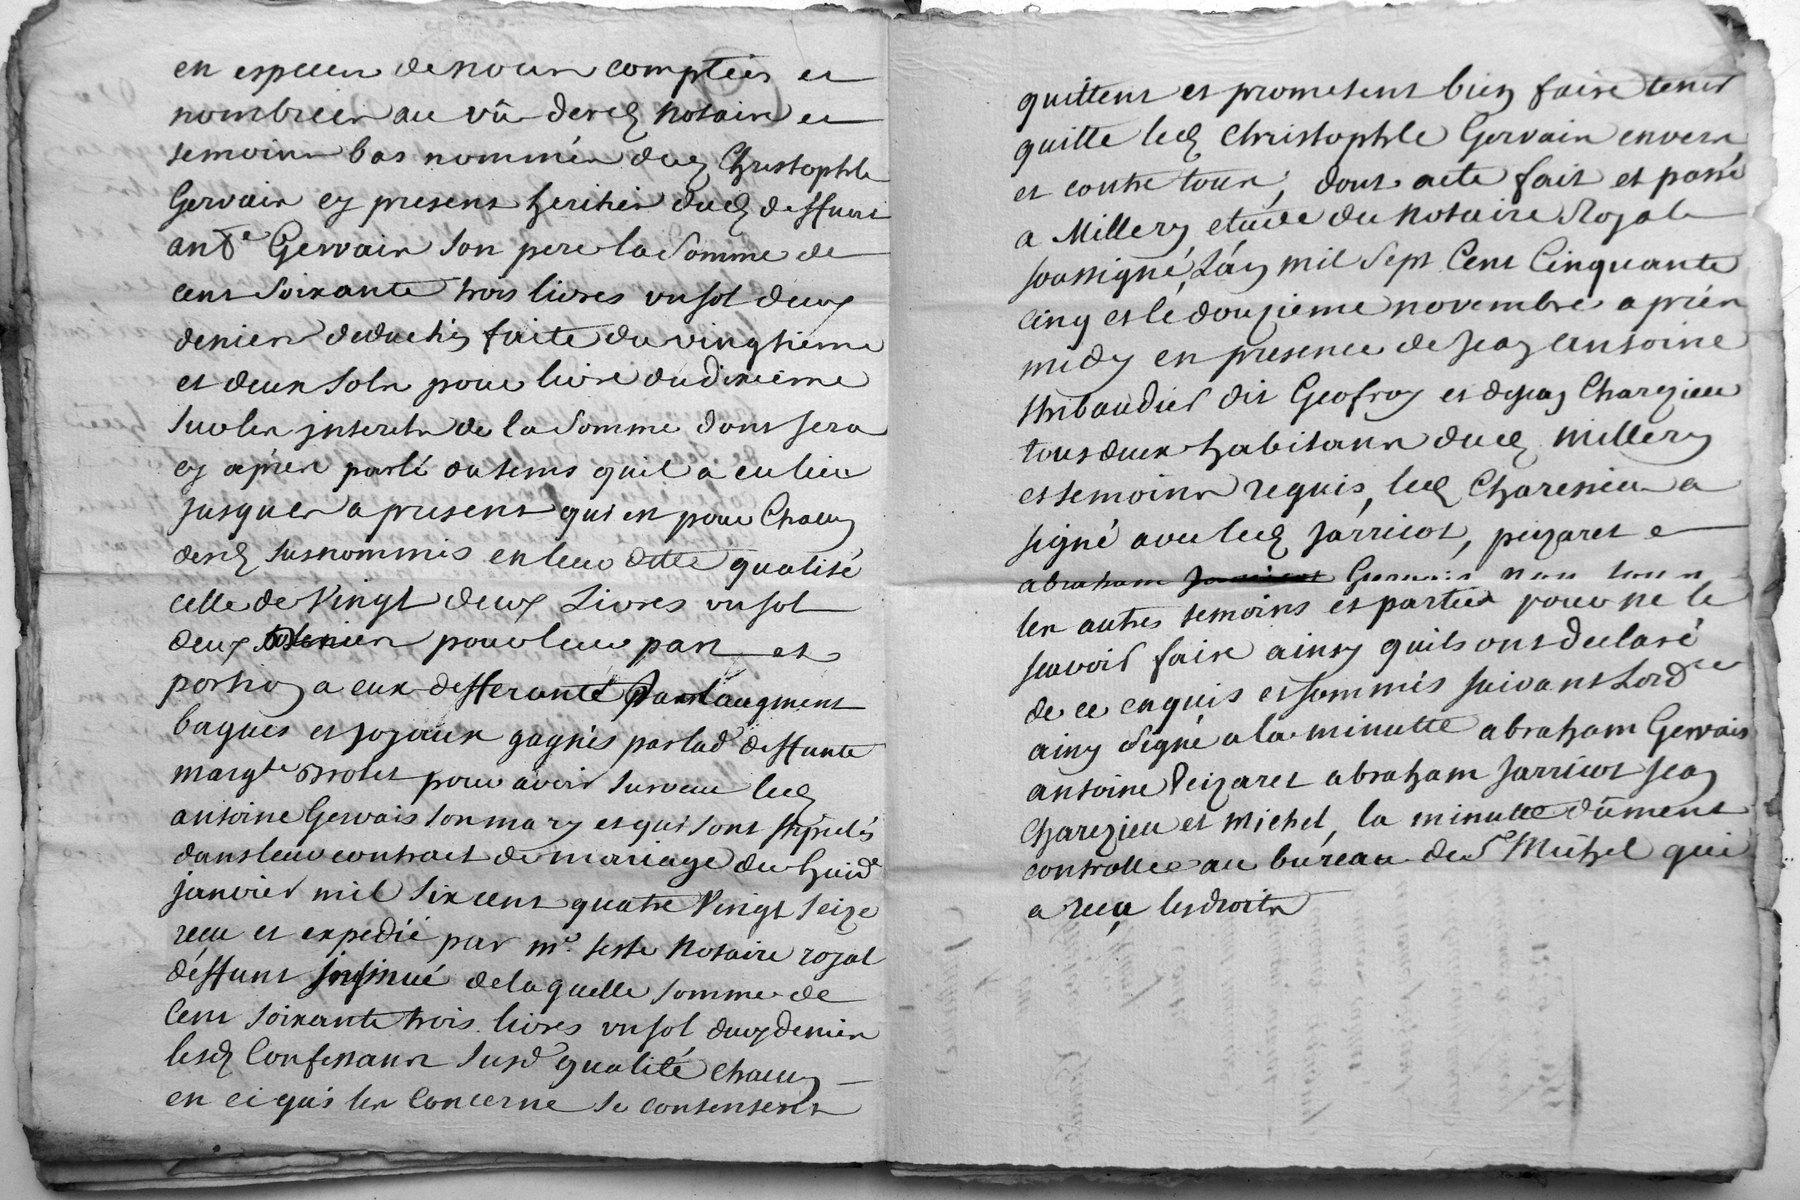 en especes de nous comptées et
nombrées au vû desd notaire et
temoins bas nommés dud Christophle
Gervais cy present heritier dud deffunt
antne Gervais son pere la somme de
cent soixante trois livres un sol deux
deniers deduction faite du vingtieme
et deux sols pour livre du dixieme
sur les interets de la somme dont sera
cy apres parlé du tems quil a eu lieu
jusques a present qui est pour Chacun
desd susnommés en leur dette qualité
celle de Vingt deux Livres un sol
deux deniers pour leur part et
portion a eux defferante par laugment
bagues et joyaux gagnés par lade deffunte
margte pour avoir survecu led
antoine Gervais son mary et qui sont stipulés
dans leur contract de mariage du huit
janvier mil six cent quatre Vingt seize
reçu et expedié par me teste Notaire royal
déffunt insinué de laquelle somme de
Cent soixante trois livres un sol deux deniers
lesd Confessants susd qualité chacun
en ci qui les Concerne se contentent
quittent et prometent bien faire tenir
quitte led Christophle Gervais envers
et contre tous, dont acte fait et passé
a Millery etude du Notaire Royal
soussigné, Lan mil Sept Cent Cinquante
cinq et le douzieme novembre apres
midy en presence de Jean antoine
thibaudier dit Geofroy et de jean Charezieu
tous deux habitans dud Millery
et temoins requis, led Charezieu a
signé avec led Jarricot, peizaret et
abraham Gervais non tous
les autres temoins et parties pour ne le
scavoir faire ainsy quils ont declaré
de ce enquis et sommés suivant Lordce
ainsy signé a la minutte abraham Gervais
antoine Peizaret abraham Jarricot Jean
Charezieu et Michel, la minutte dûment
controllee au bureau de sr Michel qui
a reçu les droits